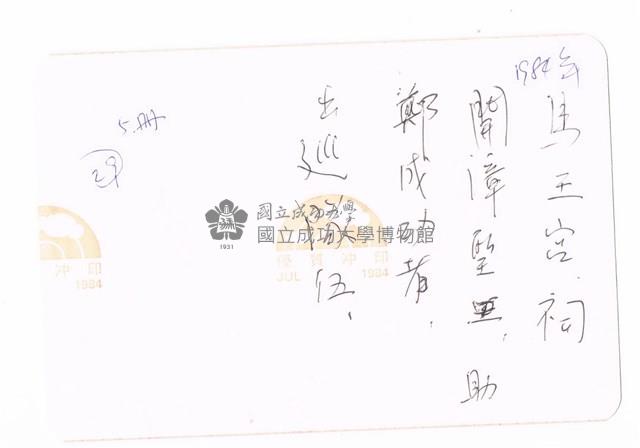 1984年
馬王宮.祠
開漳聖王,助
鄭成功者,
出巡隊伍,
5.冊
29
國立成功大學
國立成功大學博物館
1931
沖印
1984
優質沖印
JUL 1984